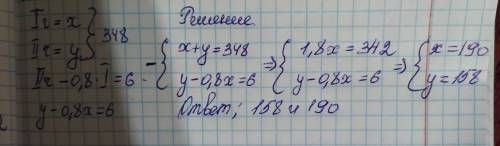 Iг = x } 348 Решение
IIг = y
IIг - 0,8·I = 6 - { x+y=348 => { 1,8x = 342 => { x=190
y-0,8x=6 y-0,8x=6 y=158
y-0,8x=6 Ответ; 158 и 190